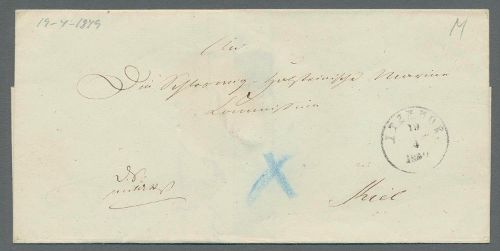 19-4-1849
M
An
Die Schleswig-Holsteinische Marine
Commission
ITZEHOE.
19
4
D. S.
Kiel